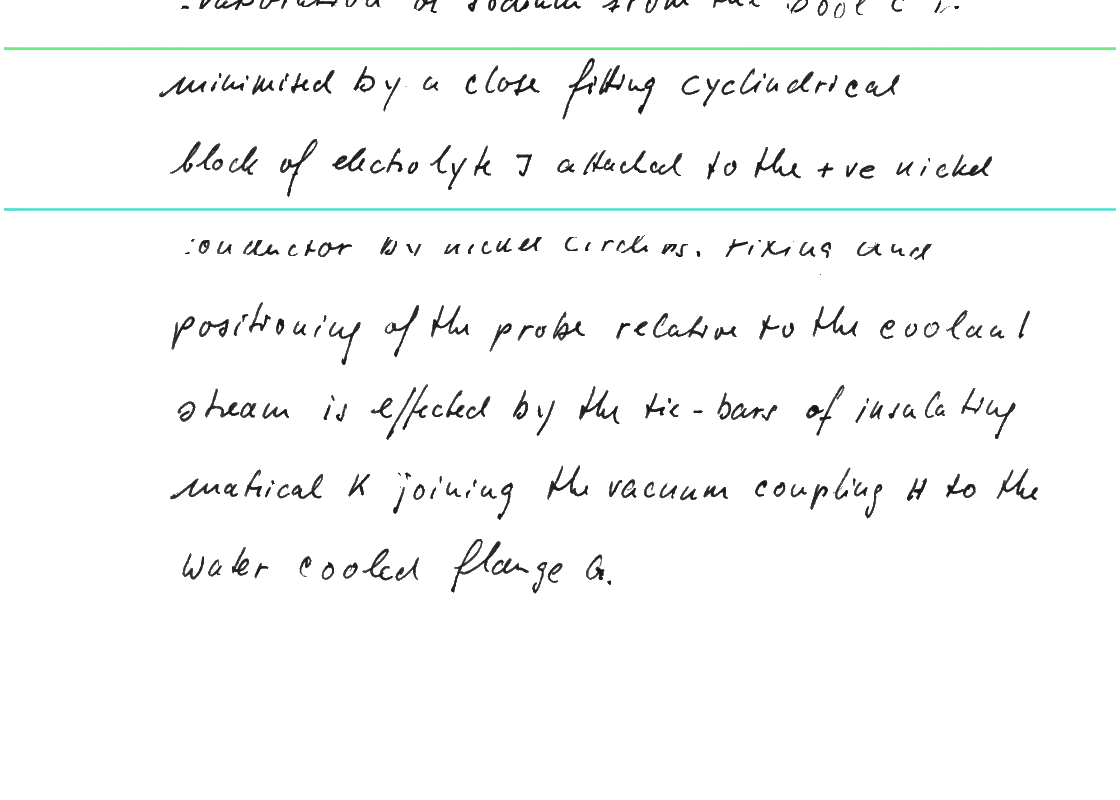 evaporation of sodium from the pool C is
minimised by a close fitting cyclindrical
block of electrolyte J attached to the +ve nickel
conductor by nickel circlips. Fixing and
positioning of the probe relative to the coolant
stream is effected by the tie-bars of insulating
material K joining the vacuum coupling H to the
water cooled flange G.